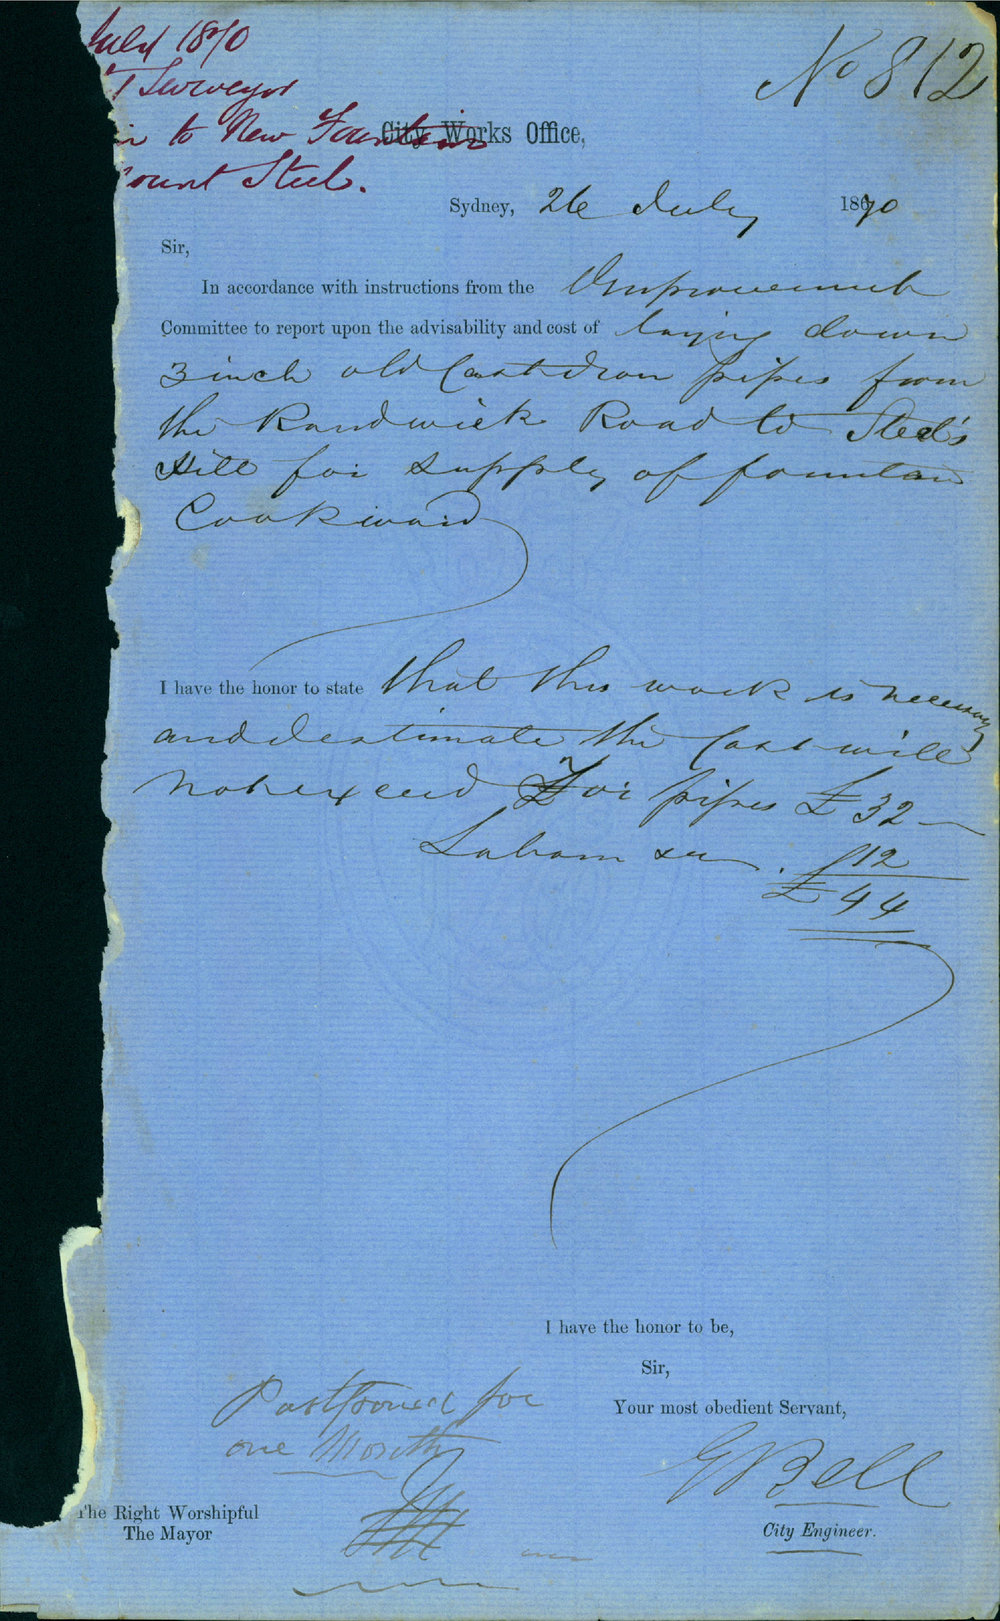 July 1870
No 812
Surveyor
to New Fountain
City Works Office,
ount Steel.
Sydney, 26 July 1870
Sir,
In accordance with instructions from the Improvement
Committee to report upon the advisability and cost of laying down
3 inch old Cast Iron pipes from
the Randwick Road to Steel's
Hill for supply of fountain
Cook ward
I have the honor to state that this work is necessary
and I estimate the Cost will
not exceed For pipes £32 —
Labour &c £12
£44
I have the honor to be,
Sir,
Your most obedient Servant,
Postponed for
one Month
G Bell
The Right Worshipful
The Mayor
City Engineer.